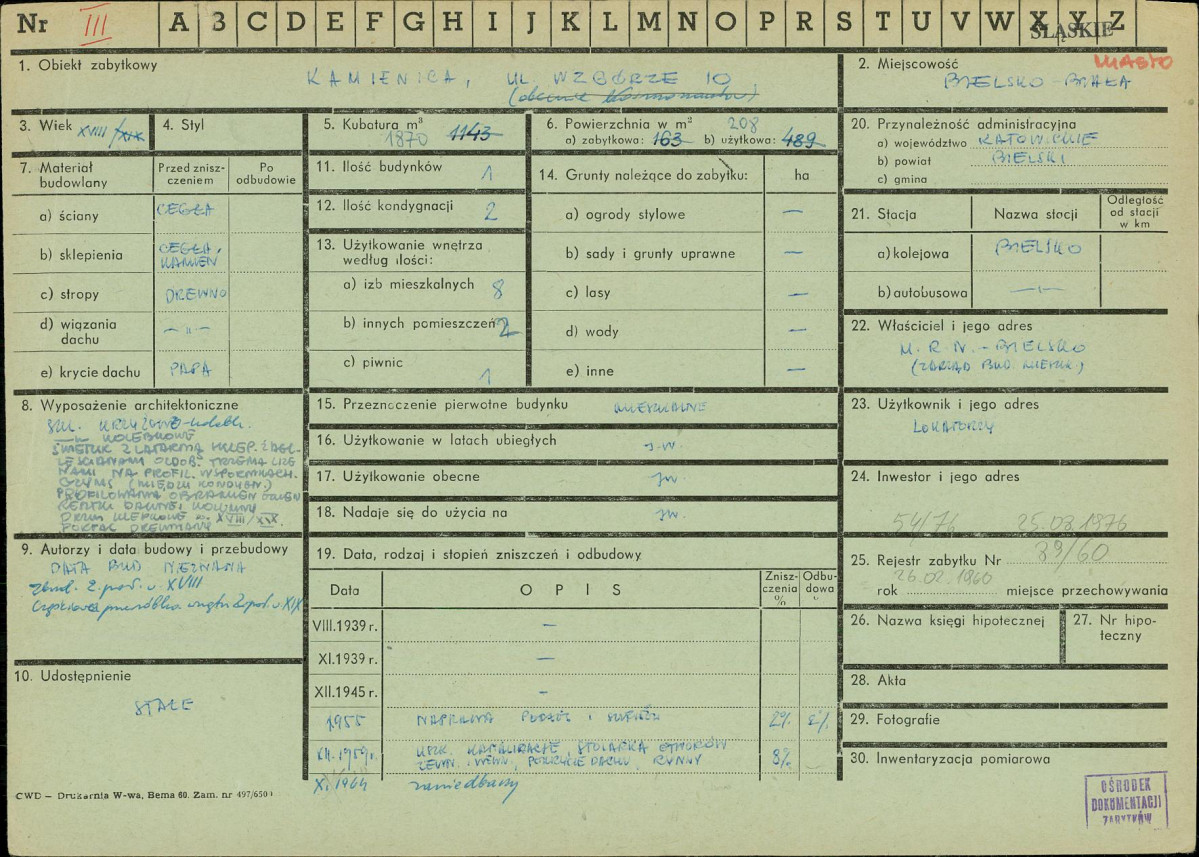 Nr III A B C D E F G H I J K L M N O P R S T U V W X Y Z
ŚLĄSKIE
1. Obiekt zabytkowy
KAMIENICA, UL. WZGÓRZE 10
2. Miejscowość MIASTO
BIELSKO-BIAŁA
3. Wiek XVIII/XIX
4. Styl
5. Kubatura m³
1870 1143
6. Powierzchnia w m² 208
a) zabytkowa: 163 b) użytkowa: 489
7. Materiał budowlany
Przed zniszczeniem
Po odbudowie
a) ściany CEGŁA
b) sklepienia CEGŁA, KAMIEŃ
c) stropy DREWNO
d) wiązania dachu -"-
e) krycie dachu PAPA
8. Wyposażenie architektoniczne
PORTAL DREWNIANY
9. Autorzy i data budowy i przebudowy
DATA BUD NIEZNANA
zbud. 2 poł. w. XVIII
10. Udostępnienie
STAŁE
11. Ilość budynków 1
12. Ilość kondygnacji 2
13. Użytkowanie wnętrza według ilości:
a) izb mieszkalnych 8
b) innych pomieszczeń 2
c) piwnic 1
14. Grunty należące do zabytku: ha
a) ogrody stylowe —
b) sady i grunty uprawne —
c) lasy —
d) wody —
e) inne —
15. Przeznaczenie pierwotne budynku MIESZKALNE
16. Użytkowanie w latach ubiegłych j.w.
17. Użytkowanie obecne jw.
18. Nadaje się do użycia na jw.
19. Data, rodzaj i stopień zniszczeń i odbudowy
Data
OPIS
Zniszczenia %
Odbudowa %
VIII.1939 r. —
XI.1939 r. —
XII.1945 r. —
1955 NAPRAWA PODŁÓG I 2% 2%
XII.1959r. USZK. KANALIZACJE, STOLARKA OTWORÓW
ZEWN. I WEWN., POKRYCIE DACHU, RYNNY 8%
XI 1964 zaniedbany
20. Przynależność administracyjna
a) województwo KATOWICKIE
b) powiat BIELSKI
c) gmina
21. Stacja
Nazwa stacji
Odległość od stacji w km
a) kolejowa BIELSKO
b) autobusowa -"-
22. Właściciel i jego adres
M. R. N. - BIELSKO
23. Użytkownik i jego adres
LOKATORZY
24. Inwestor i jego adres
54/76 25.03.1976
25. Rejestr zabytku Nr 39/60
26.02.1960
rok miejsce przechowywania
26. Nazwa księgi hipotecznej
27. Nr hipoteczny
28. Akta
29. Fotografie
30. Inwentaryzacja pomiarowa
CWD – Drukarnia W-wa, Bema 60. Zam. nr 497/650
OŚRODEK
DOKUMENTACJI
ZABYTKÓW